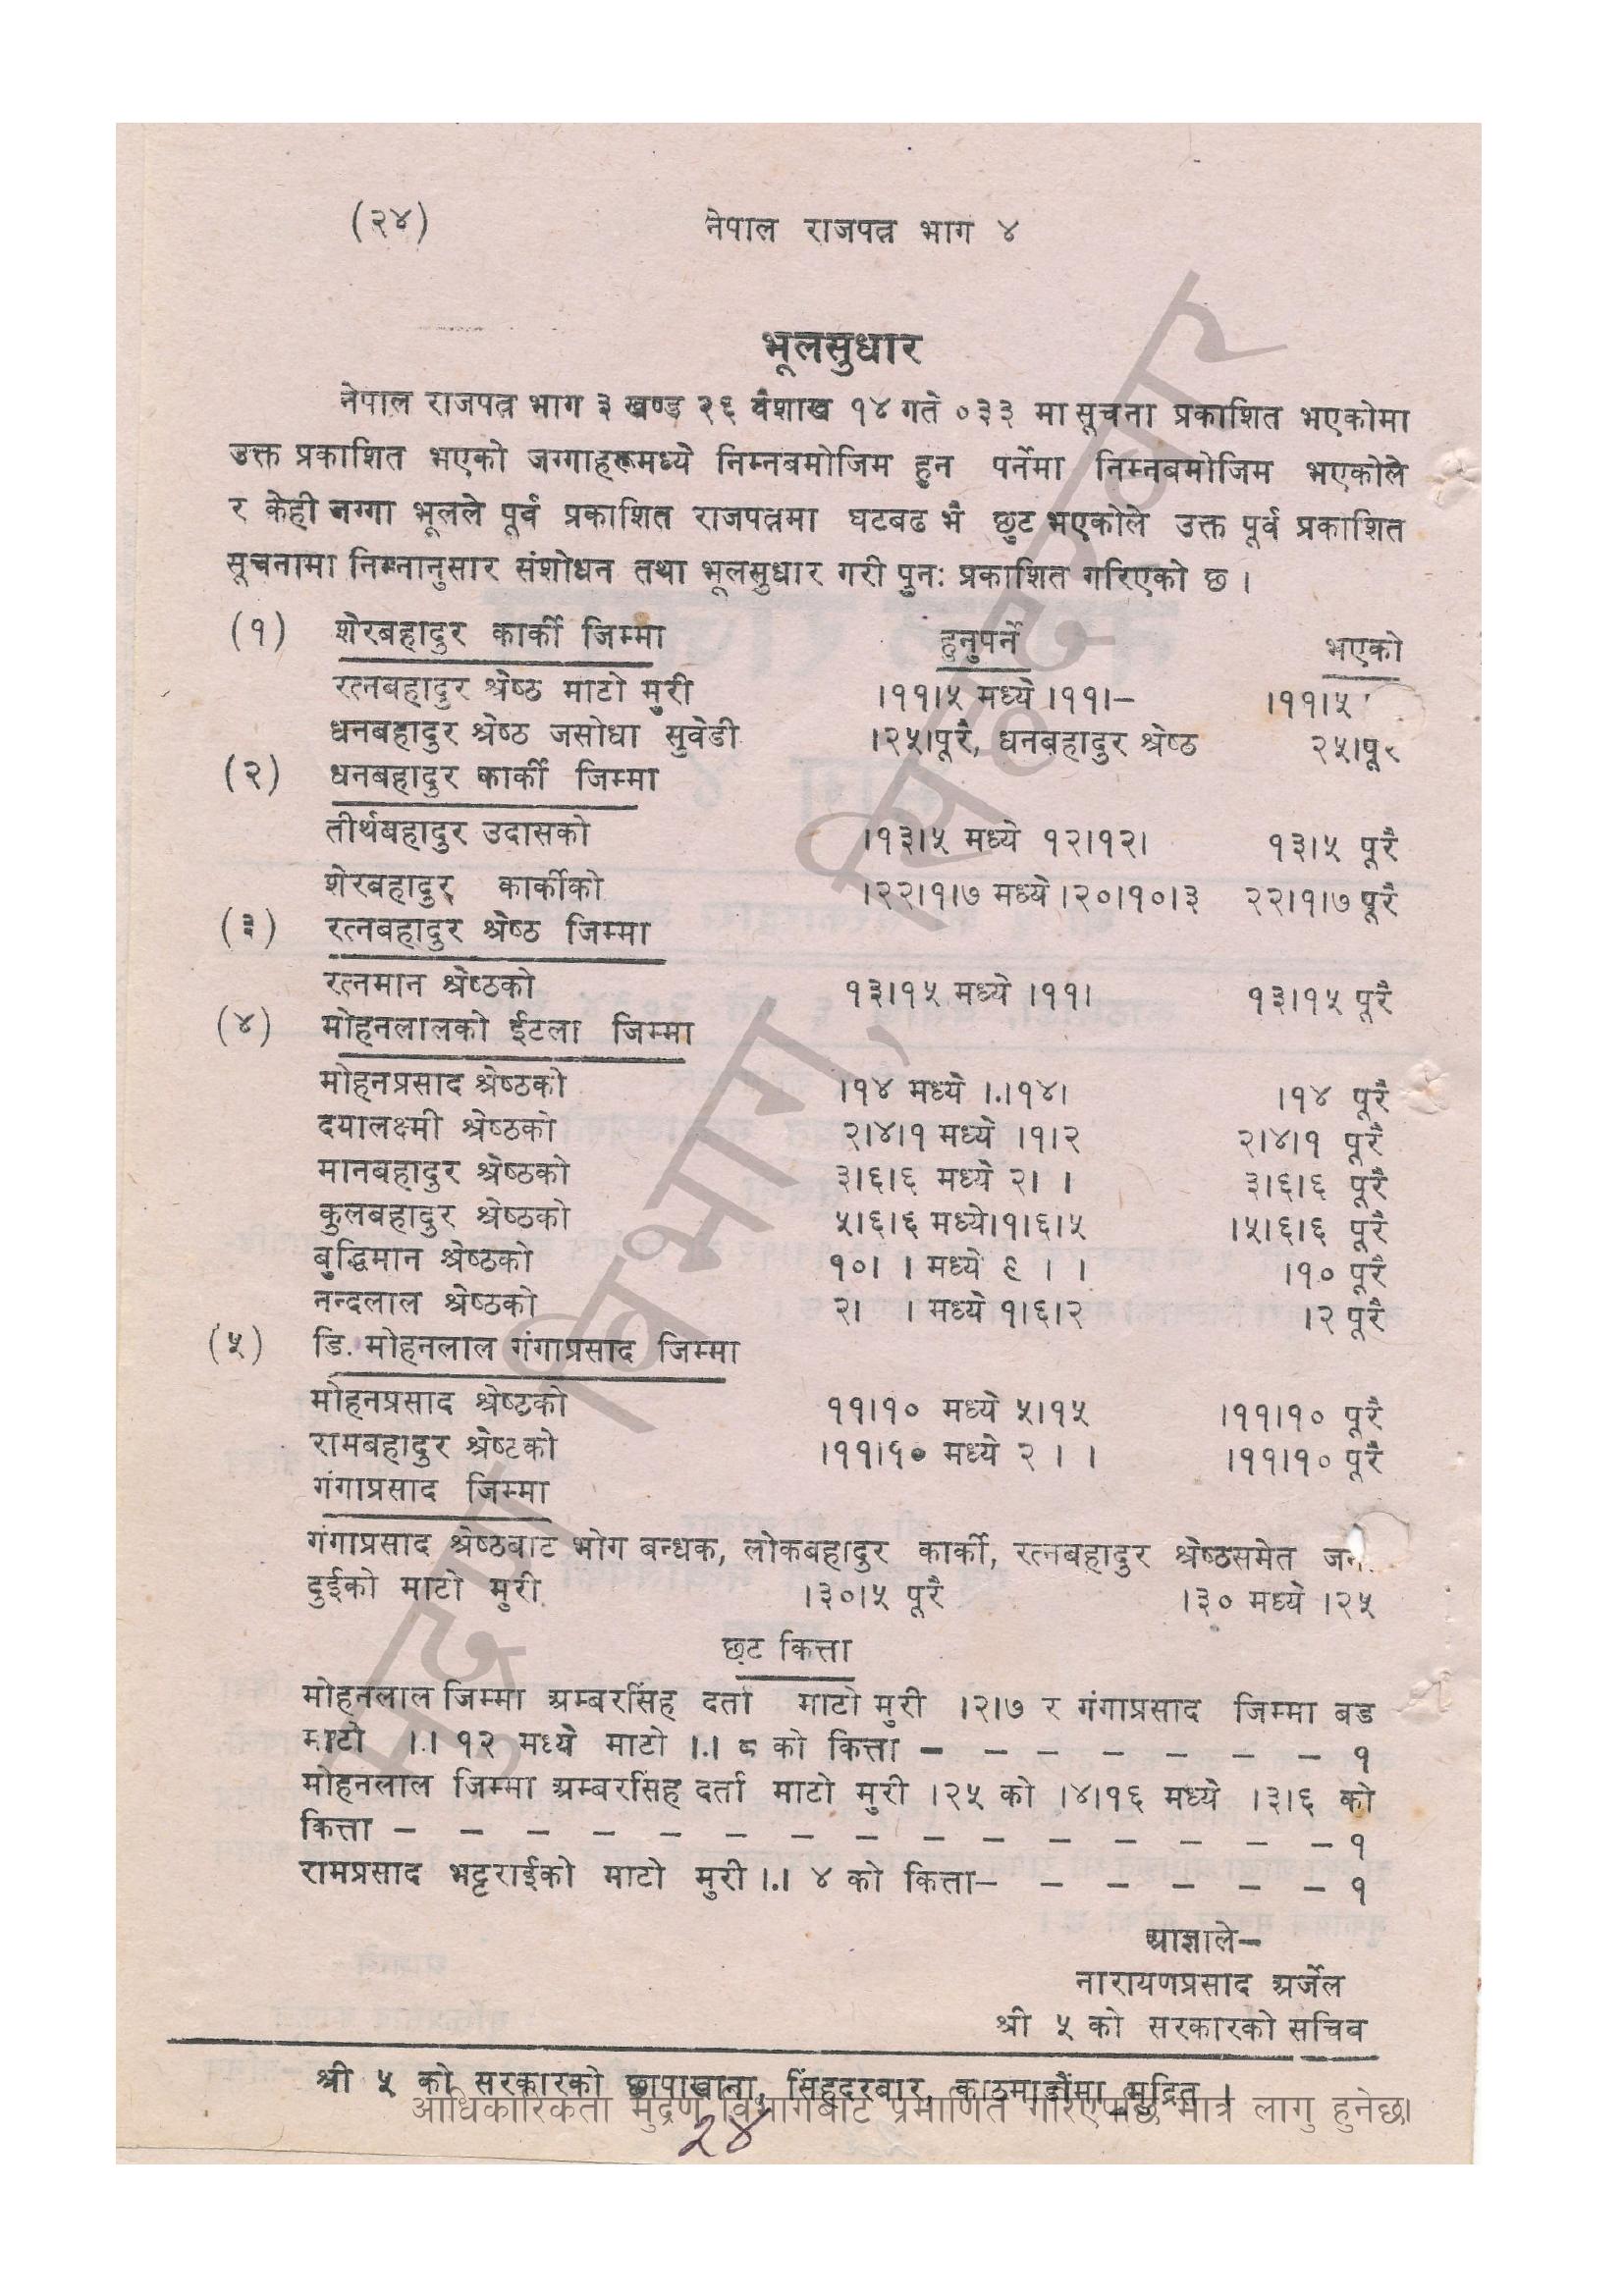 (२४) नेपाल राजपत्र भाग ४
भूलसुधार
नेपाल राजपत्र भाग ३ खण्ड २६ वैशाख १४ गते ०३३ मा सूचना प्रकाशित भएकोमा
उक्त प्रकाशित भएको जग्गाहरूमध्ये निम्नबमोजिम हुन पर्नेमा निम्नबमोजिम भएकोले
र केही जग्गा भूलले पूर्व प्रकाशित राजपत्रमा घटबढ भै छुट भएकोले उक्त पूर्व प्रकाशित
सूचनामा निम्नानुसार संशोधन तथा भूलसुधार गरी पुनः प्रकाशित गरिएको छ ।
(१) शेरबहादुर कार्की जिम्मा हुनुपर्ने भएको
रत्नबहादुर श्रेष्ठ माटो मुरी ।११।५ मध्ये ।११।– ।११।५
धनबहादुर श्रेष्ठ जसोधा सुवेडी ।२५।पूरै, धनबहादुर श्रेष्ठ २५।पूरै
(२) धनबहादुर कार्की जिम्मा
तीर्थबहादुर उदासको ।१३।५ मध्ये १२।१२। १३।५ पूरै
शेरबहादुर कार्कीको ।२२।१।७ मध्ये ।२०।१०।३ २२।१।७ पूरै
(३) रत्नबहादुर श्रेष्ठ जिम्मा
रत्नमान श्रेष्ठको १३।१५ मध्ये ।११। १३।१५ पूरै
(४) मोहनलालको ईटला जिम्मा
मोहनप्रसाद श्रेष्ठको ।१४ मध्ये ।.।१४। ।१४ पूरै
दयालक्ष्मी श्रेष्ठको २।४।१ मध्ये ।१।२ २।४।१ पूरै
मानबहादुर श्रेष्ठको ३।६।६ मध्ये २। । ३।६।६ पूरै
कुलबहादुर श्रेष्ठको ५।६।६ मध्ये।१।६।५ ।५।६।६ पूरै
बुद्धिमान श्रेष्ठको १०। । मध्ये ९ । । ।१० पूरै
नन्दलाल श्रेष्ठको २। । मध्ये १।६।२ ।२ पूरै
(५) डि. मोहनलाल गंगाप्रसाद जिम्मा
मोहनप्रसाद श्रेष्टको ११।१० मध्ये ५।१५ ।११।१० पूरै
रामबहादुर श्रेष्टको ।११।५० मध्ये २ । । ।११।१० पूरै
गंगाप्रसाद जिम्मा
गंगाप्रसाद श्रेष्ठबाट भोग बन्धक, लोकबहादुर कार्की, रत्नबहादुर श्रेष्ठसमेत
दुईको माटो मुरी ।३०।५ पूरै ।३० मध्ये ।२५
छट कित्ता
मोहनलाल जिम्मा अम्बरसिंह दर्ता माटो मुरी ।२।७ र गंगाप्रसाद जिम्मा बड
माटो ।.। १२ मध्ये माटो ।.। ८ को कित्ता – – – – – – – १
मोहनलाल जिम्मा अम्बरसिंह दर्ता माटो मुरी ।२५ को ।४।१६ मध्ये ।३।६ को
कित्ता – – – – – – – – – – – – – – – १
रामप्रसाद भट्टराईको माटो मुरी ।.। ४ को कित्ता– – – – – – १
आज्ञाले–
नारायणप्रसाद अर्जेल
श्री ५ को सरकारको सचिव
श्री ५ को सरकारको छापाखाना, सिंहदरबार, काठमाडौंमा मुद्रित ।
आधिकारिकता मुद्रण विभागबाट प्रमाणित गरिएपछि मात्र लागु हुनेछ।
२४
मुद्रण विभाग, सिंहदरबार